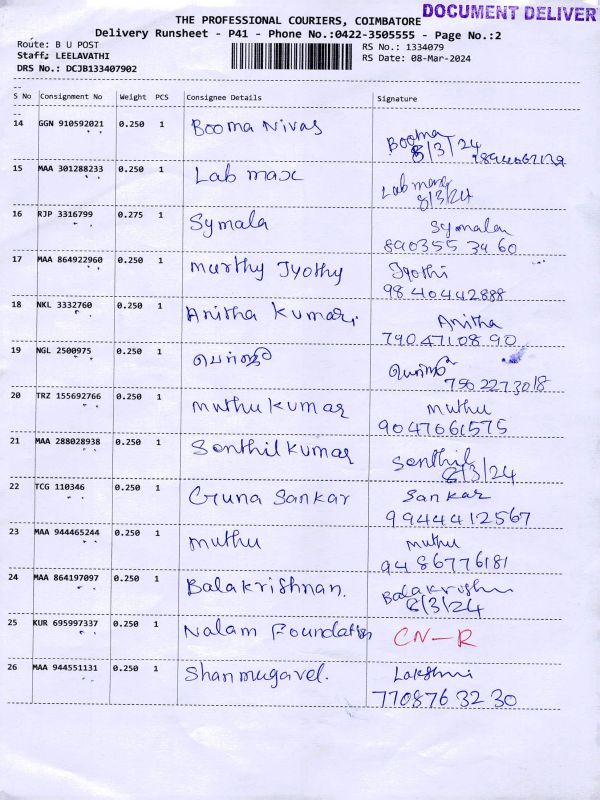 DOCUMENT DELIVER
THE PROFESSIONAL COURIERS, COIMBATORE
Delivery Runsheet - P41 - Phone No.:0422-3505555 - Page No.:2
Route: B U POST RS No.: 1334079
Staff: LEELAVATHI RS Date: 08-Mar-2024
DRS No.: DCJB133407902
S No Consignment No Weight PCS Consignee Details Signature
14 GGN 910592021 0.250 1 Booma Nivas Booma
8/3/24
15 MAA 301288233 0.250 1 Lab max Lab
8/3/24
16 RJP 3316799 0.275 1 Symala Symala
890355 3960
17 MAA 864922960 0.250 1 Murthy Jyothy Jyothi
98 40442888
18 NKL 3332760 0.250 1 Anitha Kumari. Anitha
790 47108 90
19 NGL 2500975 0.250 1
750 2273018
20 TRZ 155692766 0.250 1 muthu kumar muthu
9047061575
21 MAA 288028938 0.250 1 Senthil kumar Senthil
8/3/24
22 TCG 110346 0.250 1 Guna Sankar Sankar
99444 12567
23 MAA 944465244 0.250 1 muthu muthu
94 86776181
24 MAA 864197097 0.250 1 Balakrishnan.
8/3/24
25 KUR 695997337 0.250 1 Nalam Foundation CN-R
26 MAA 944551131 0.250 1 Shanmugavel. Lakshmi
770876 32 30